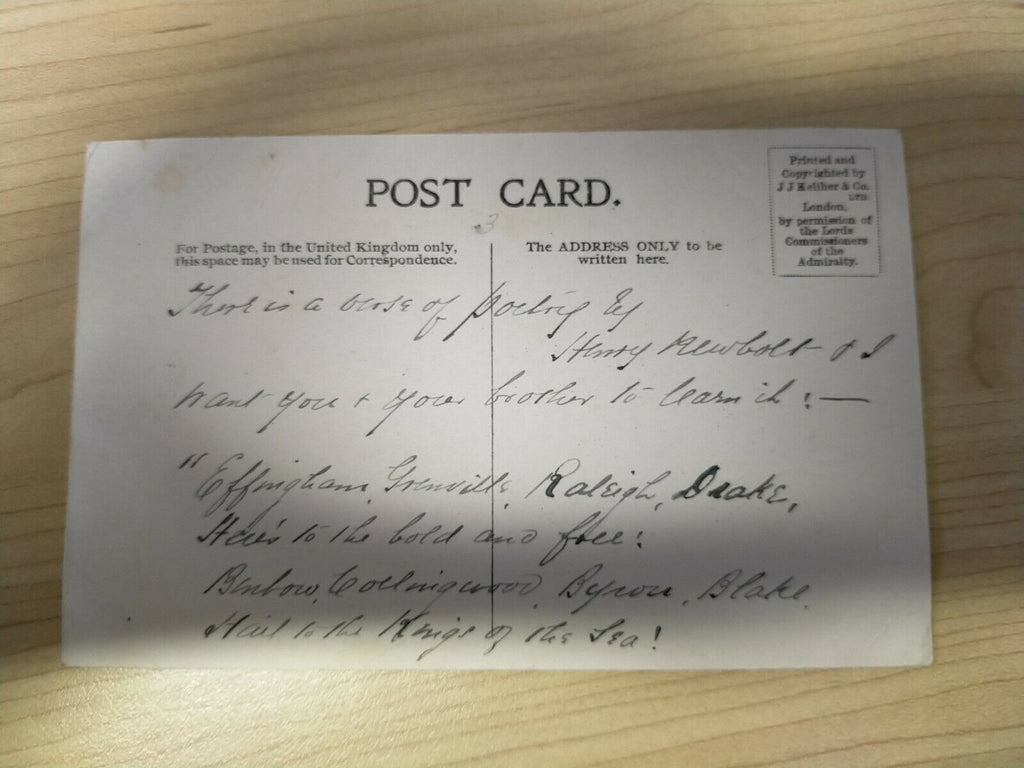 POST CARD.
3
For Postage, in the United Kingdom only,
this space may be used for Correspondence.
The ADDRESS ONLY to be
written here.
Printed and
Copyrighted by
J J Keliher & Co.
LTD.
London,
by permission of
the Lords
Commissioners
of the
Admiralty.
There is a verse of poetry by
Henry Newbolt & I
want you & your brother to learn it :—
"Effingham, Grenville, Raleigh, Drake,
Here's to the bold and free!
Benbow, Collingwood, Byron, Blake,
Hail to the Kings of the Sea!